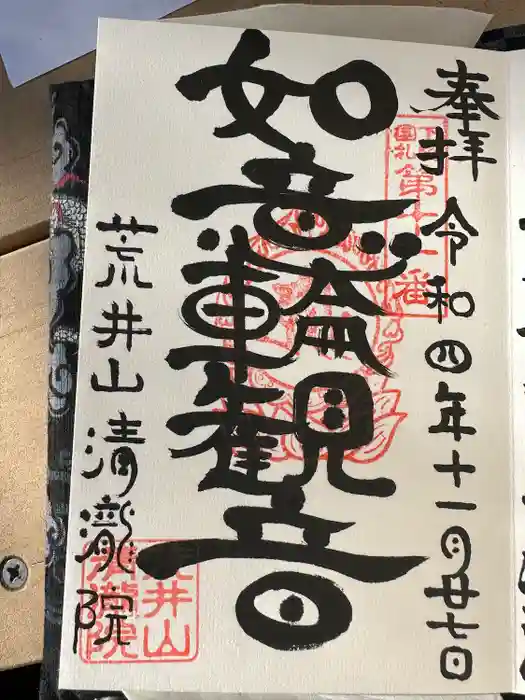 奉拝
令和四年十一月廿七日
第十一番
如意輪観音
荒井山清瀧院
荒井山
清瀧院